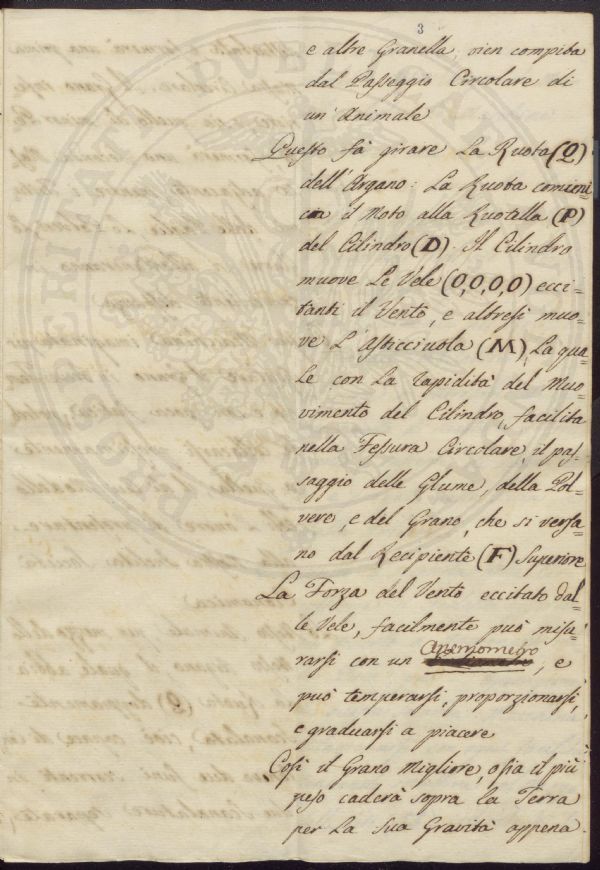 3
e altre Granella, vien compita
dal Passeggio Circolare di
un' Animale
Questo fà girare La Ruota (Q)
dell' Argano: La Ruota comuni=
ca il Moto alla Ruotella (P)
del Cilindro (D). Il Cilindro
muove Le Vele (O,O,O,O) ecci=
tanti il Vento, e altresi muo=
ve L' Asticciuola (M), La qua=
le con La rapidità del Muo=
vimento del Cilindro, facilita
nella Fessura Circolare, il pas=
saggio delle Glume, della Pol=
vere, e del Grano, che si versa=
no dal Recipiente (F) Superiore
La Forza del Vento eccitato dal=
le Vele, facilmente può misu=
rarsi con un Anemometro, e
può temperarsi, proporzionarsi,
e graduarsi a piacere
Così il Grano Migliore, osia il più
peso caderà sopra la Terra
per La Sua Gravità appena